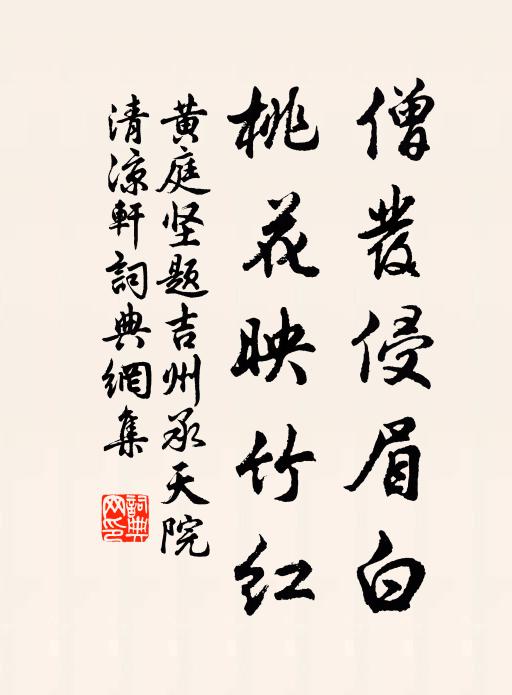 僧發侵眉白
桃花映竹红
黄庭坚题吉州承天院
清凉軒詞典網集
詞典
网印